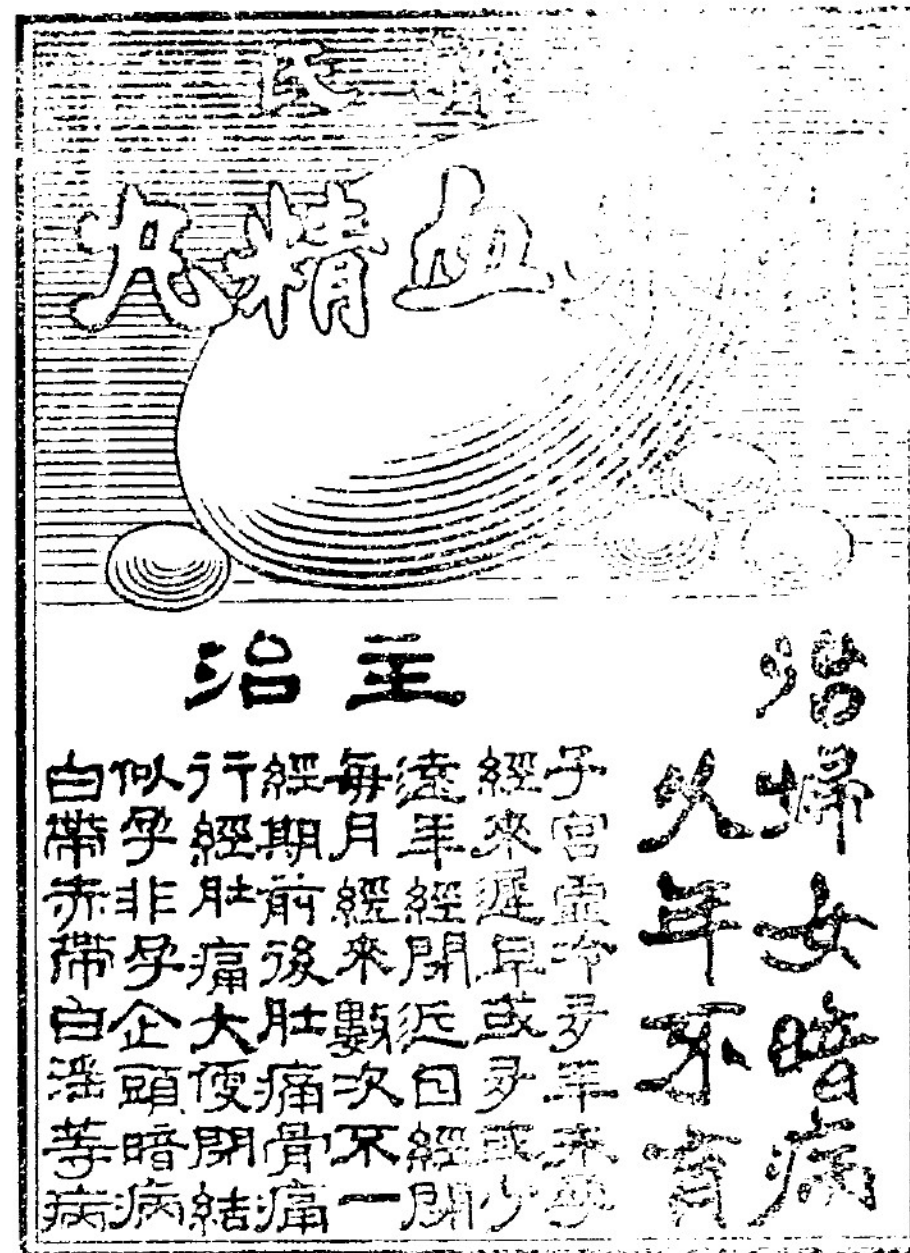 氏
血精丸
治婦女暗病
久年不育
主治
子宮虛冷多年未孕
經來遲早或多或少
遠年經閉近日經閉
每月經來數次不一
經期前後肚痛骨痛
行經肚痛大便閉結
似孕非孕企頭暗病
白帶赤帶白淫等病